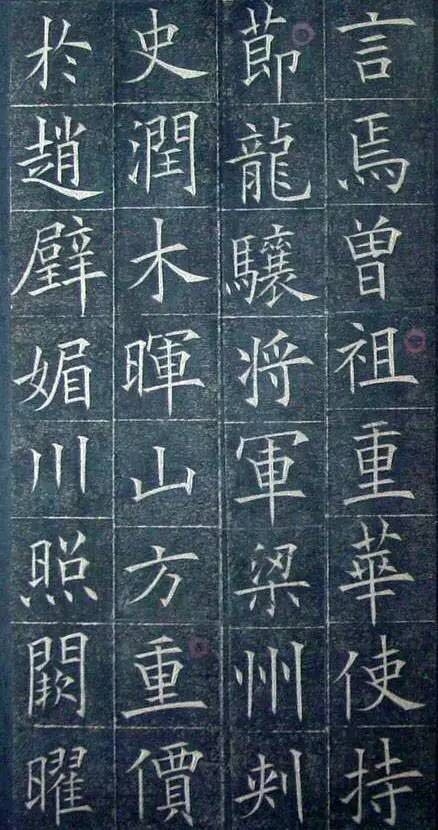 言焉曾祖重華使持
節龍驤将軍梁州刺
史潤木暉山方重價
於趙璧媚川照闕曜